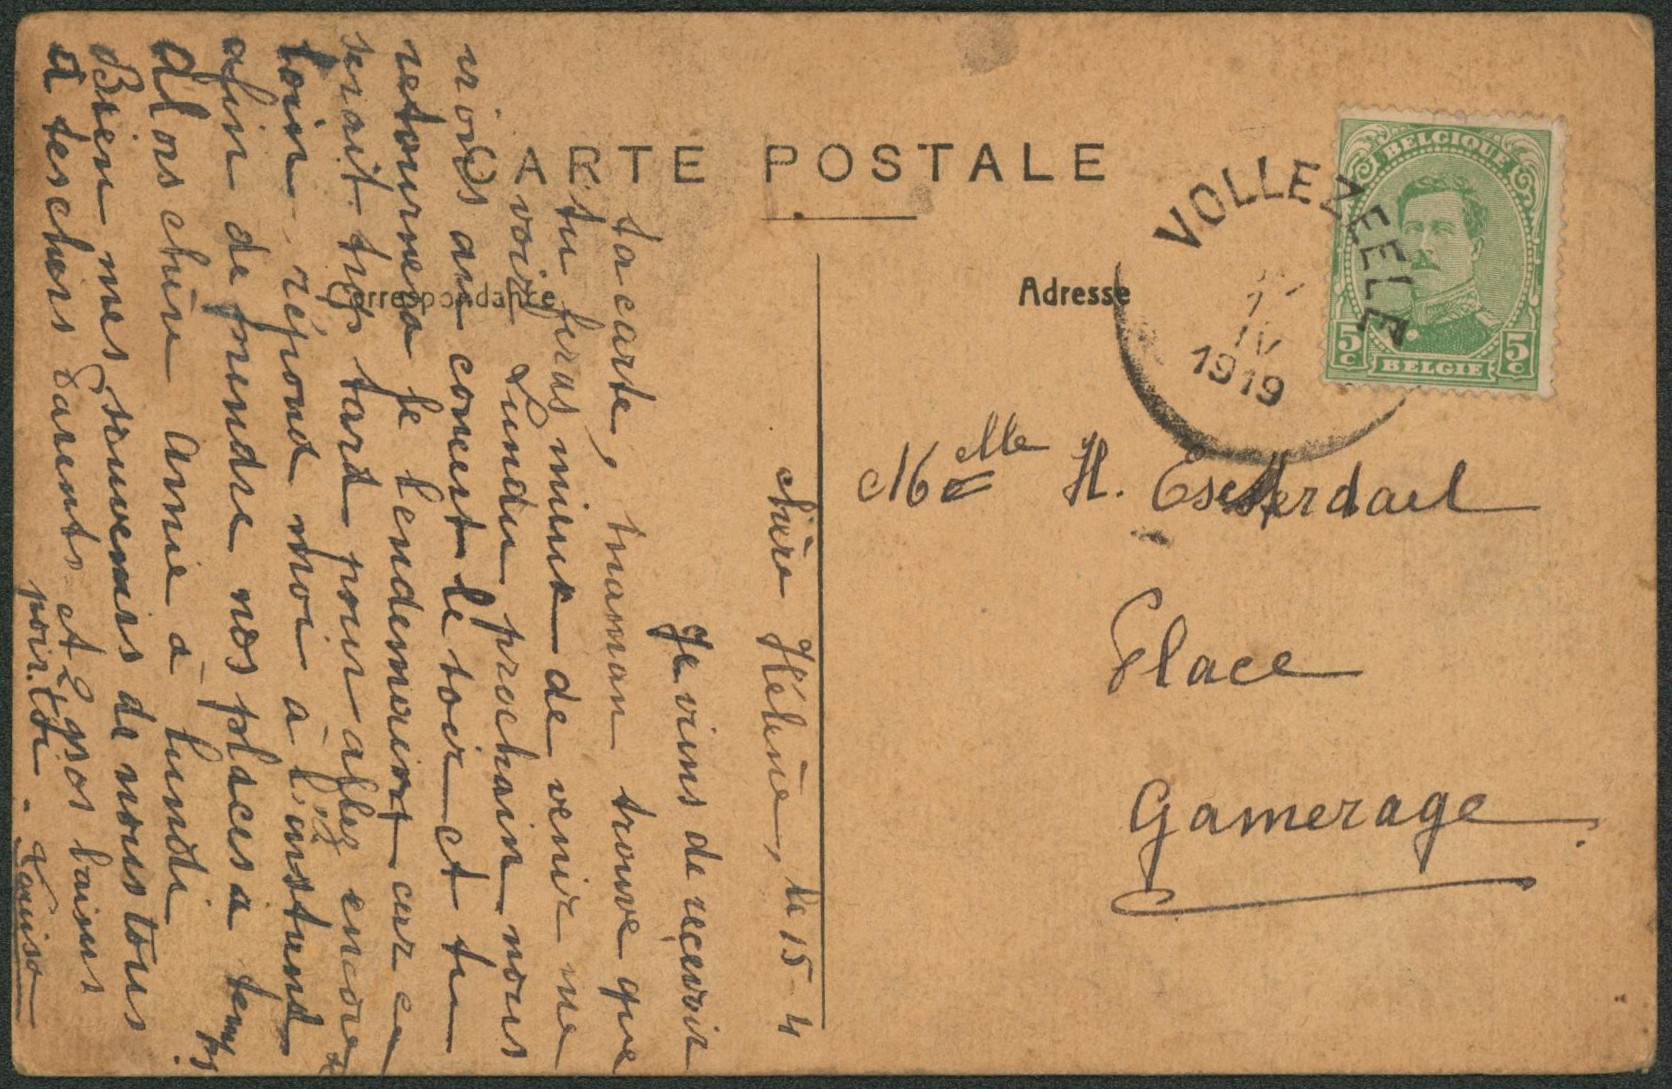 CARTE POSTALE
Correspondance
Adresse
VOLLEZEELE
IV
1919
BELGIQUE
5c 5c
BELGIE
Melle H. Esselerdael
Place
Gamerage
Chère Hélène, le 15-4
Je viens de recevoir
ta carte, maman trouve que
tu feras mieux de venir me
voir Lundi prochain nous
irions au concert le soir et tu
retournera le lendemerin car ca
serait trop tard pour aller encore
loin répond moi à l'instand
afin de prendre nos places a temps
Alors chère Amie à lundi
Bien mes souvenirs de nous tous
a tes chers Parents et gros baisers
pour toi. Louisa